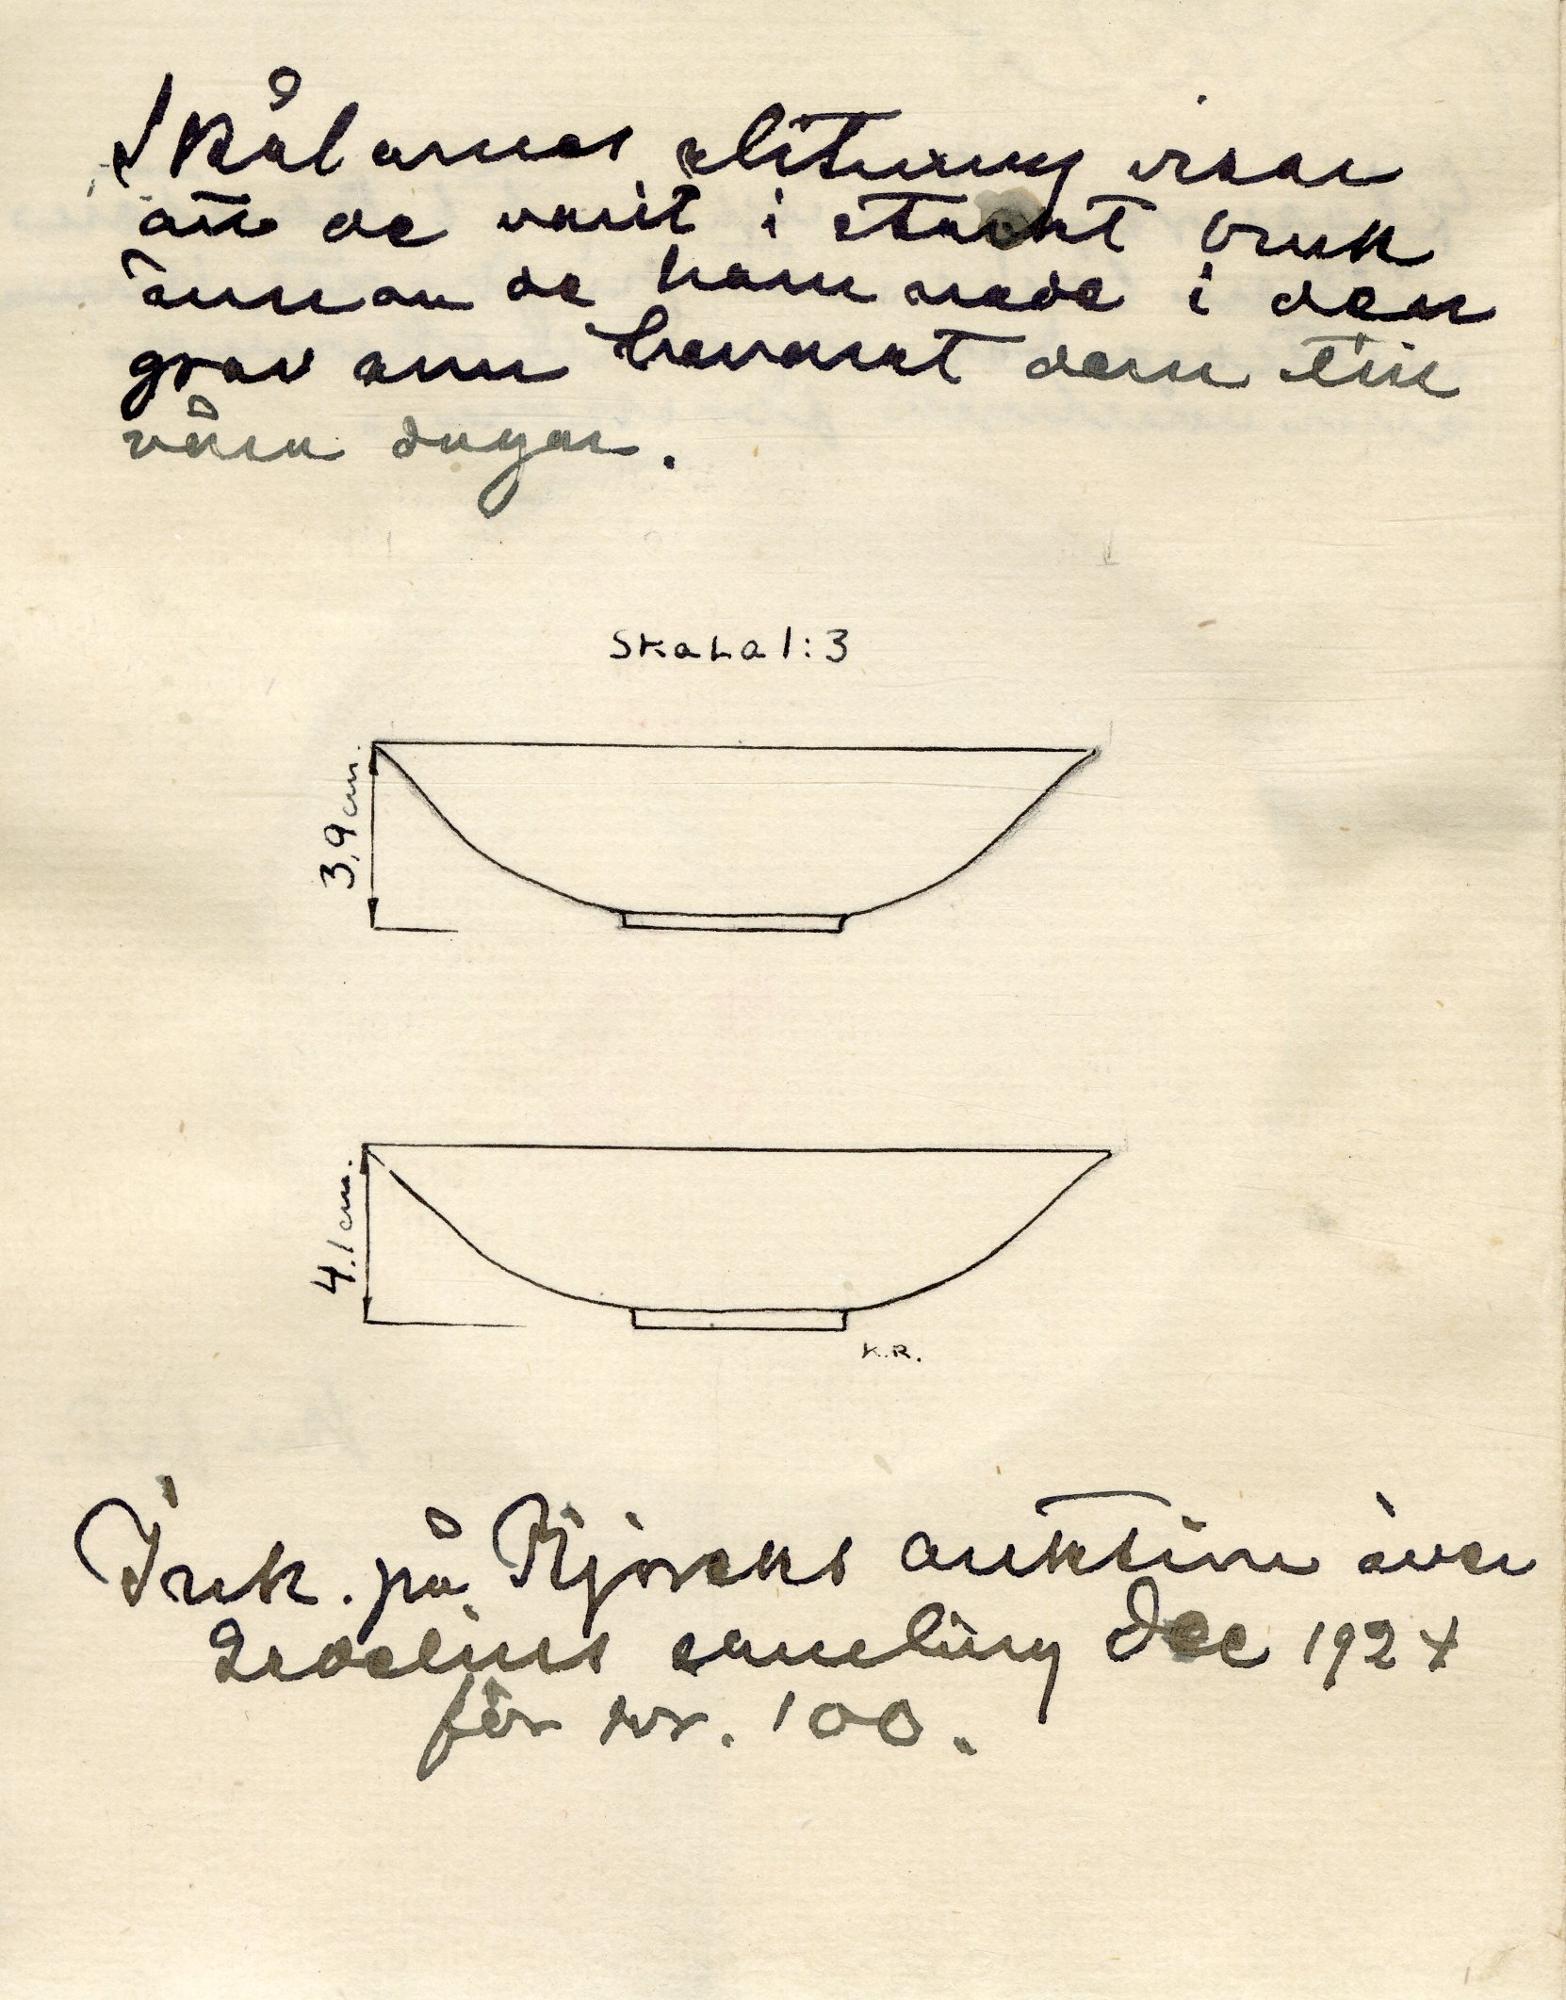 Skålarnes slitning visar
att de varit i starkt bruk
innan de hamnade i den
grav som bevarat dem till
våra dagar.
Skala 1:3
3,9 cm.
4.1 cm.
K.R.
Ink. på auktion över
samling Dec 1924
för kr. 100.